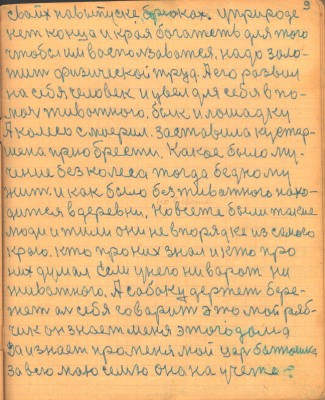 9
своих навыпуске, брюках. И природе
нет конца и края богатеть для того
чтобы им воспользоватся, надо зало-
жит физической труд. А его развил
на себя человек и увел для себя в по-
мач животного, бык и лошадку
А колесо смаерил. заставила куятар-
мена приобрести. Какое было му-
чение без колеса тогда бедному
жит. и как было без животного нахо-
дится в деревни, Но всете были такие
люди и жили они не вторядке из самого
краю. кто про них знал и кто про
них думал Если у него ни варот ни
животного. А собаку держет бере-
жет ал себя говарит это мой ряб-
чик он знает меня этого дома
Да и знает про меня мой цар батюшка
за всю маю семью она на учете =